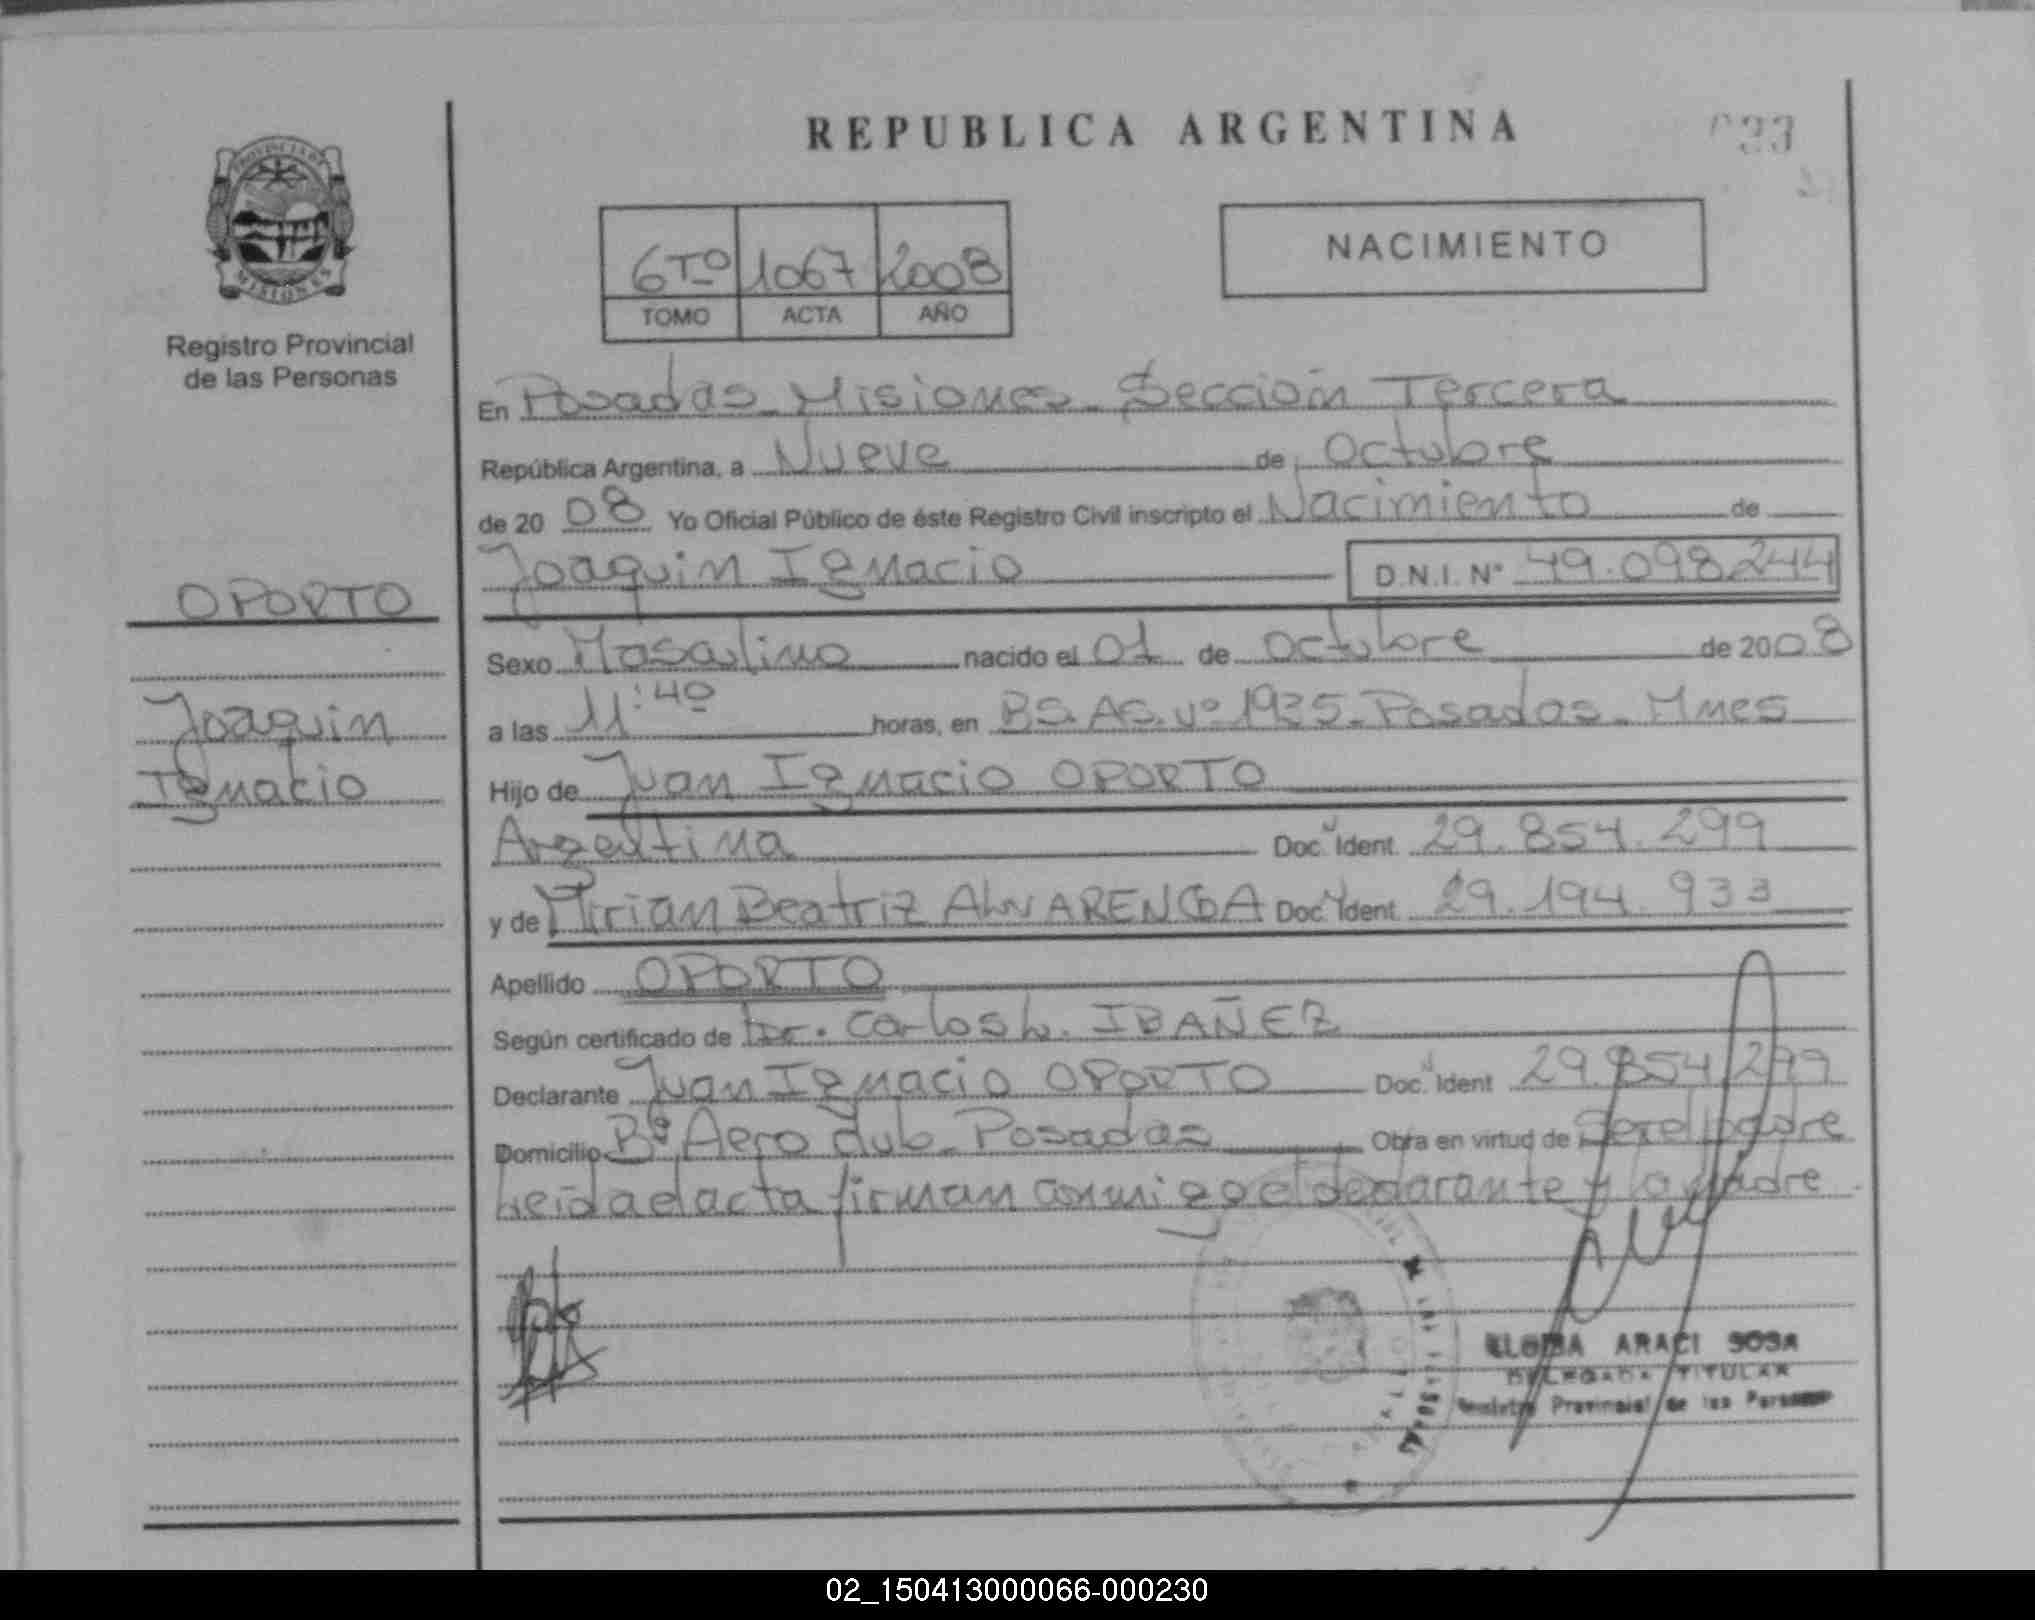 REPUBLICA ARGENTINA
033
PROVINCIA DE
MISIONES
Registro Provincial
de las Personas
6TO 1067 2008
TOMO ACTA AÑO
NACIMIENTO
En Posadas Misiones Sección Tercera
República Argentina, a Nueve de Octubre
de 20 08 Yo Oficial Público de éste Registro Civil inscripto el Nacimiento de
Joaquin Ignacio D.N.I. Nº 49.098.244
OPORTO
Joaquin
Ignacio
Sexo Masculino nacido el 01 de Octubre de 2008
a las 11:40 horas, en BS.AS. Nº 1935 Posadas Mnes
Hijo de Juan Ignacio OPORTO
Argentina Doc. Ident. 29.854.299
y de Mirian Beatriz ALVARENGA Doc. Ident. 29.194.933
Apellido OPORTO
Según certificado de Dr. Carlos L. IBAÑEZ
Declarante Juan Ignacio OPORTO Doc. Ident 29.854.299
Domicilio Bº Aero club Posadas Obra en virtud de Ser el padre
Leida el acta firman conmigo el declarante y la madre.
ELOISA ARACI SOSA
DELEGADA TITULAR
Registro Provincial de las Personas
02_150413000066-000230